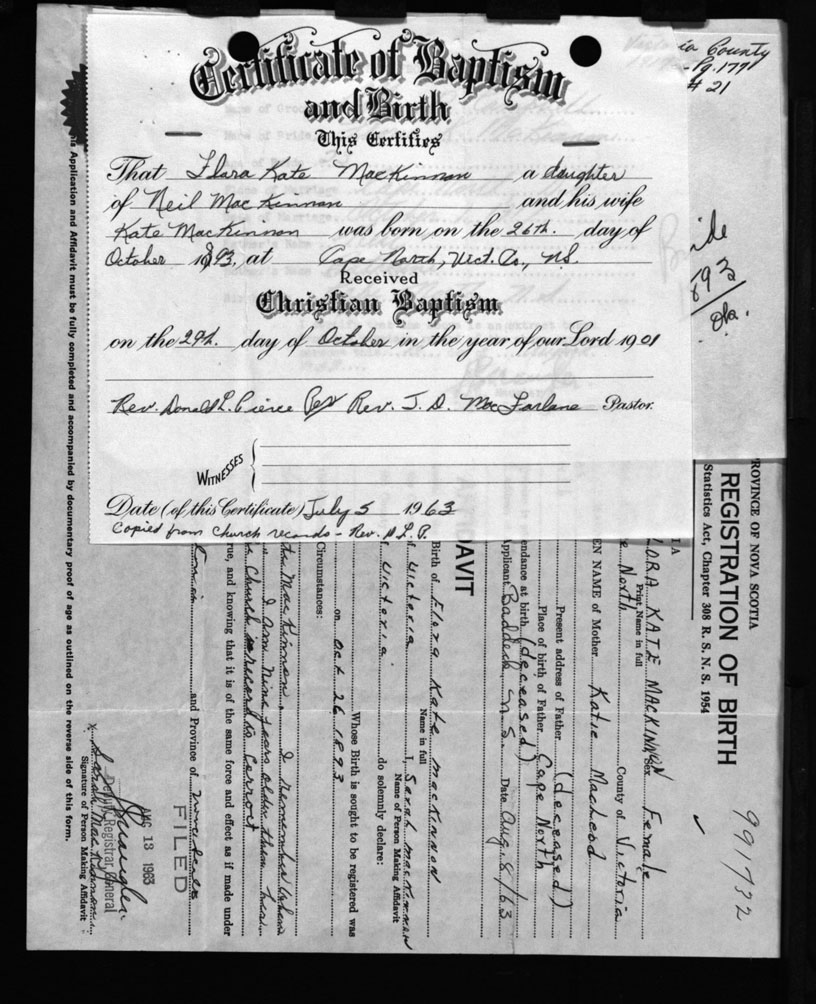 Certificate of Baptism
and Birth
This Certifies
That Flora Kate MacKinnon a daughter
of Neil MacKinnon and his wife
Kate MacKinnon was born on the 26th. day of
October 1893, at Cape North, Vict. Co., N.S.
Received
Christian Baptism
on the 29th. day of October in the year of our Lord 1901
Rev. Donald L. Pierce Per Rev. J. D. MacFarlane Pastor.
WITNESSES
Date (of this Certificate) July 5 1963
Copied from church records - Rev. D. L. P.
ia County
Pg. 177
# 21
Bride
893
Ok.
ROVINCE OF NOVA SCOTIA
Statistics Act, Chapter 308 R. S. N. S. 1954
REGISTRATION OF BIRTH
991732
LORA KATE MACKINNON Sex Female
Print Name in full
e North County of Victoria
EN NAME of Mother Katie MacLeod
Present address of Father (deceased)
Place of birth of Father Cape North
endance at birth (deceased)
Applicant Baddeck, N.S. Date Aug. 8/63
DAVIT
Birth of Flora Kate MacKinnon
Name in full
of Victoria I, Sarah MacKinnon
Name of Person Making Affidavit
Victoria do solemnly declare:
Whose Birth is sought to be registered was
on Oct 26 1893
Circumstances:
MacKinnon. I remember when
I am nine years older than her.
Church record is correct
rue, and knowing that it is of the same force and effect as if made under
and Province of
FILED
AUG 13 1963
Deputy Registrar General
x Sarah MacKinnon
Signature of Person Making Affidavit
his Application and Affidavit must be fully completed and accompanied by documentary proof of age as outlined on the reverse side of this form.